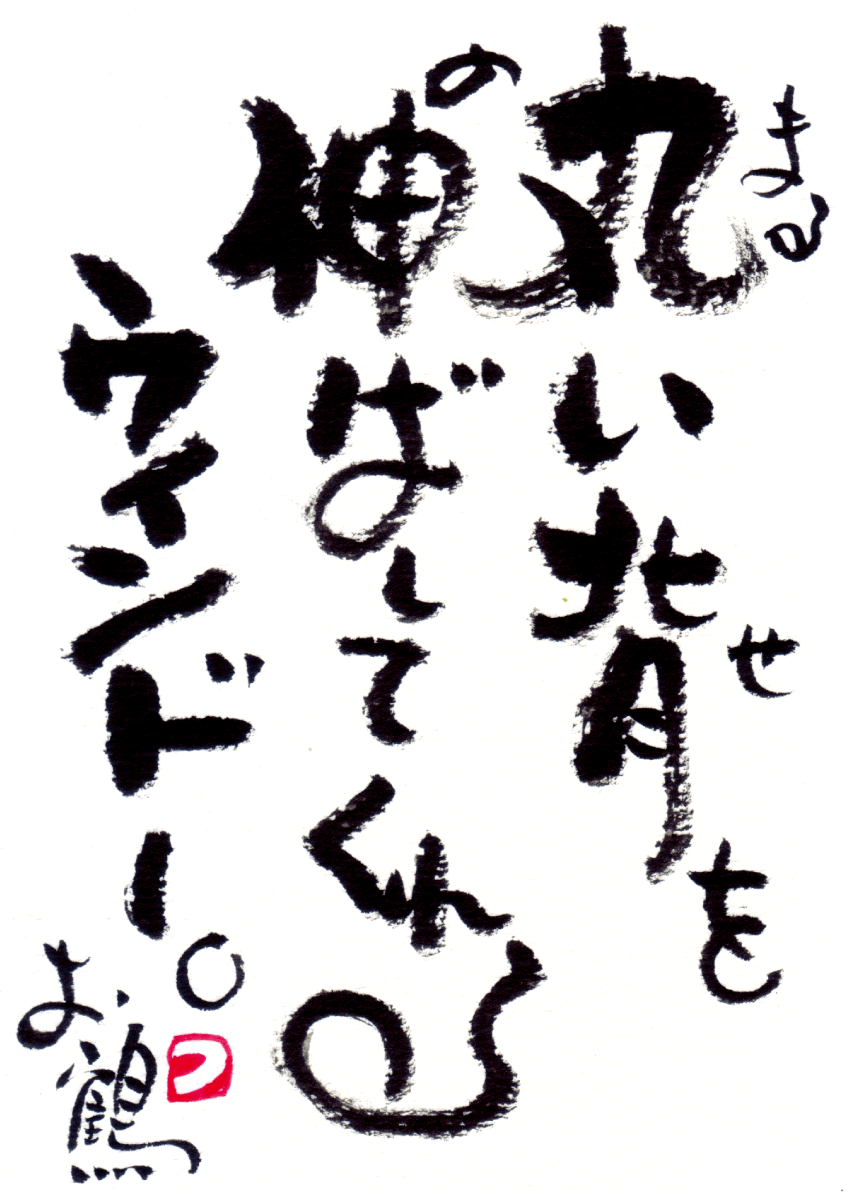 まる
丸い背を
せ
の
伸ばしてくれる
ウィンドー。
お鶴
つ